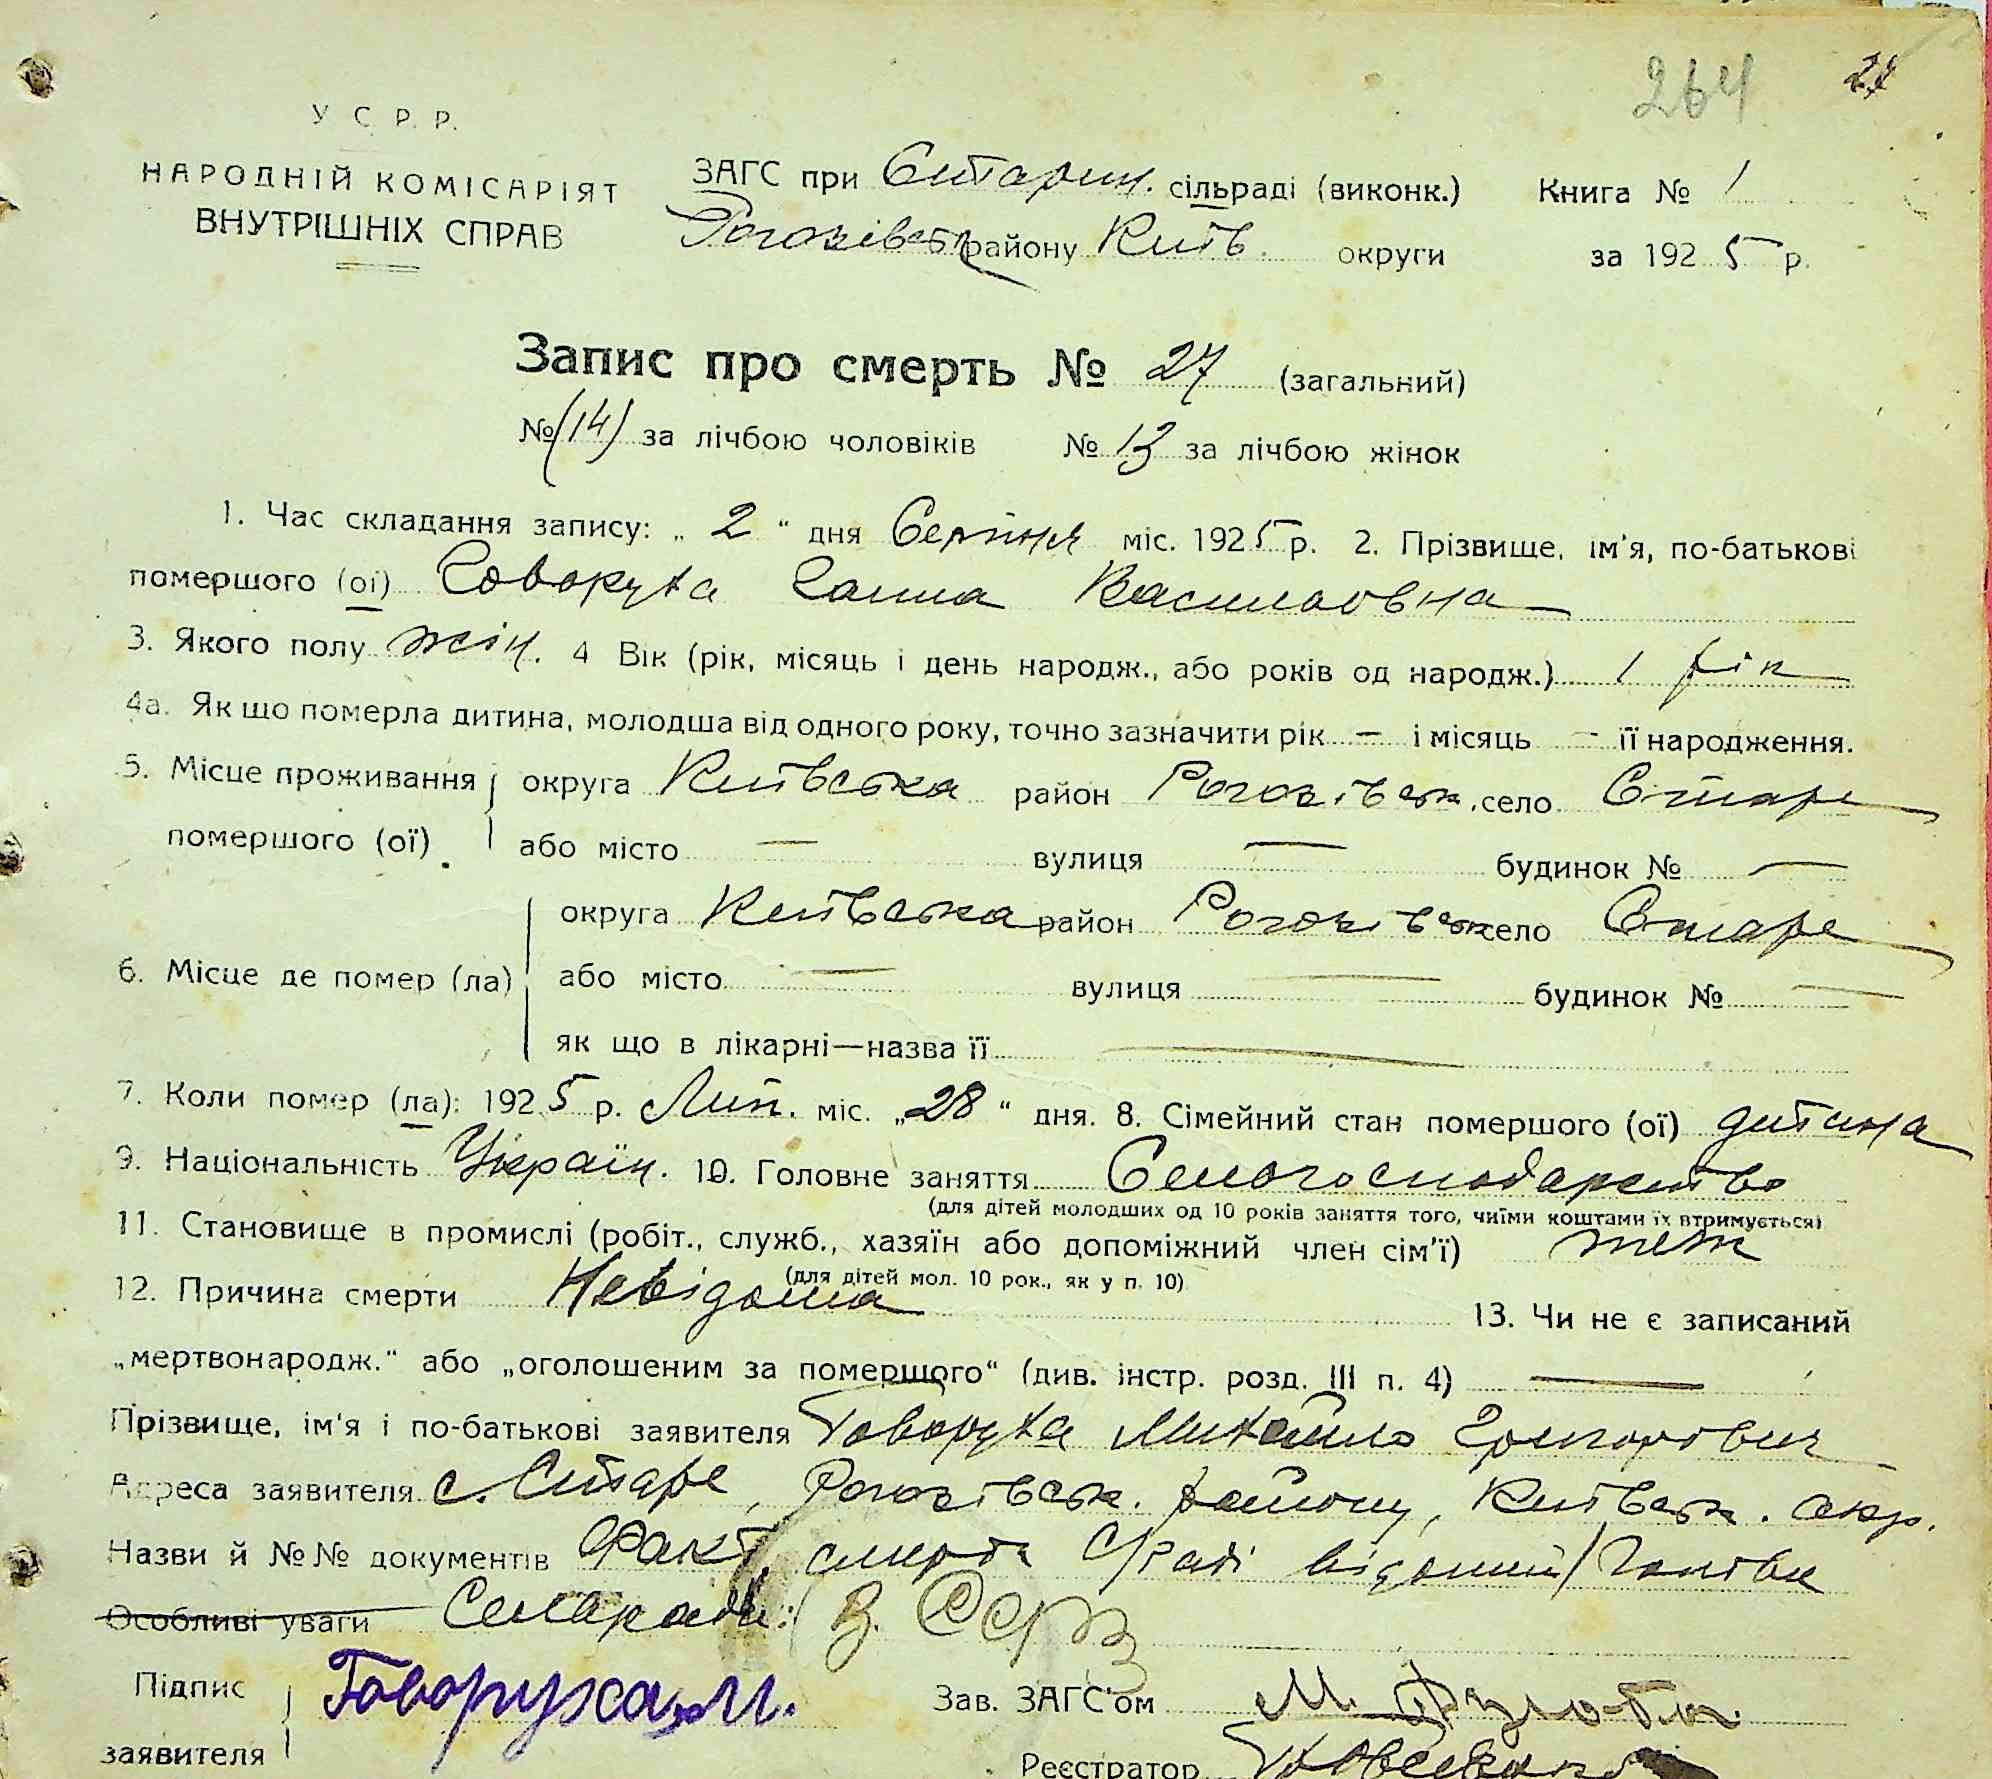 264 27
У С Р Р.
НАРОДНІЙ КОМІСАРІЯТ
ВНУТРІШНІХ СПРАВ
ЗАГС при Старин. сільраді (виконк.) Книга № 1
Рогозівськ району Київ. округи за 1925 р.
Запис про смерть № 27 (загальний)
№ (14) за лічбою чоловіків № 13 за лічбою жінок
1. Час складання запису: „ 2 “ дня Серпня міс. 1925 р. 2. Прізвище, ім'я, по-батькові
помершого (ої) Говоруха Ганна Васильовна
3. Якого полу жін. 4 Вік (рік, місяць і день народж., або років од народж.) 1 рік
4а. Як що померла дитина, молодша від одного року, точно зазначити рік — і місяць — її народження.
5. Місце проживання округа Київська район Рогозівськ. село Старе
помершого (ої) або місто — вулиця — будинок № —
округа Київська район Рогозівськ село Старе
6. Місце де помер (ла) або місто — вулиця — будинок № —
як що в лікарні—назва її —
7. Коли помер (ла): 1925 р. Лип. міс. „28“ дня. 8. Сімейний стан помершого (ої) дитина
9. Національність Україн. 10. Головне заняття Сельогосподарство
(для дітей молодших од 10 років заняття того, чиїми коштами їх втримується)
11. Становище в промислі (робіт., служб., хазяїн або допоміжний член сім'ї) теж
(для дітей мол. 10 рок., як у п. 10)
12. Причина смерти Невідома 13. Чи не є записаний
„мертвонародж.“ або „оголошеним за помершого“ (див. інстр. розд. III п. 4) —
Прізвище, ім'я і по-батькові заявителя Говоруха Михайло Григорович
Адреса заявителя с. Старе, Рогозівськ. району, Київськ. окр.
Назви й №№ документів Факт смерти С/раді відомий/Голова
Особливі уваги Сельради:
Підпис Говоруха М. Зав. ЗАГС'ом М.
заявителя Реєстратор